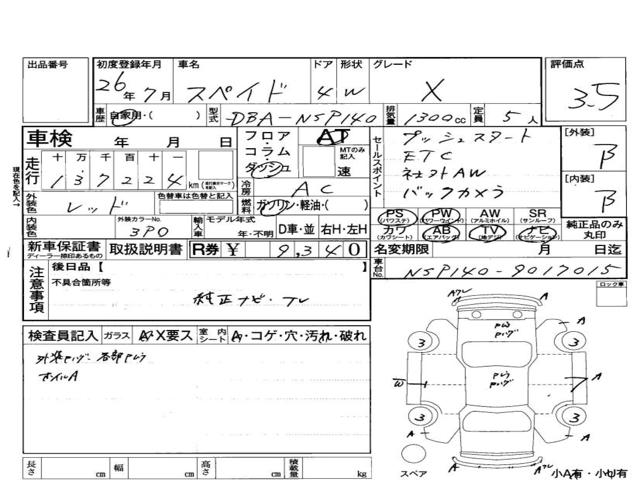 出品番号 初度登録年月 車名 ドア 形状 グレード 評価点
26年7月 スペイド 4 W X 3.5
車歴 自家用・( ) 型式 DBA-NSP140 排気量 1300cc 定員 5人
車検 年 月 日 フロア・コラム・ダッシュ AT MTのみ記入 速
走行 十 万 千 百 十 一
137224km
冷房 AC
外装色 レッド 色替車は色替と記入 燃料 ガソリン・軽油・( )
内装色 外装カラーNo. 3P0 輸入車 モデル年式 年・不明 D車・並 右H・左H
新車保証書 ディーラー捺印あるもの 取扱説明書 R券 ¥ 9,340
セールスポイント
プッシュスタート
ETC
社外AW
バックカメラ
[外装] B
[内装] B
PS (パワステ) PW (パワーウインド) AW (アルミホイル) SR (サンルーフ)
カワ (カワシート) AB (エアバッグ) TV (地デジ) ナビ (ナビゲーション)
純正品のみ丸印
名変期限 月 日迄
車台No. NSP140-9017015
ロック車
注意事項 後日品 [ ]
不具合箇所等
純正ナビ・TV
検査員記入 ガラス A・X要ス 室内シート A・コゲ・穴・汚れ・破れ
ホイルA
現在色を記入
長さ cm 幅 cm 高さ cm 積載量 kg
3 3
W A
3 3
A A
スペア
小A有・小U有